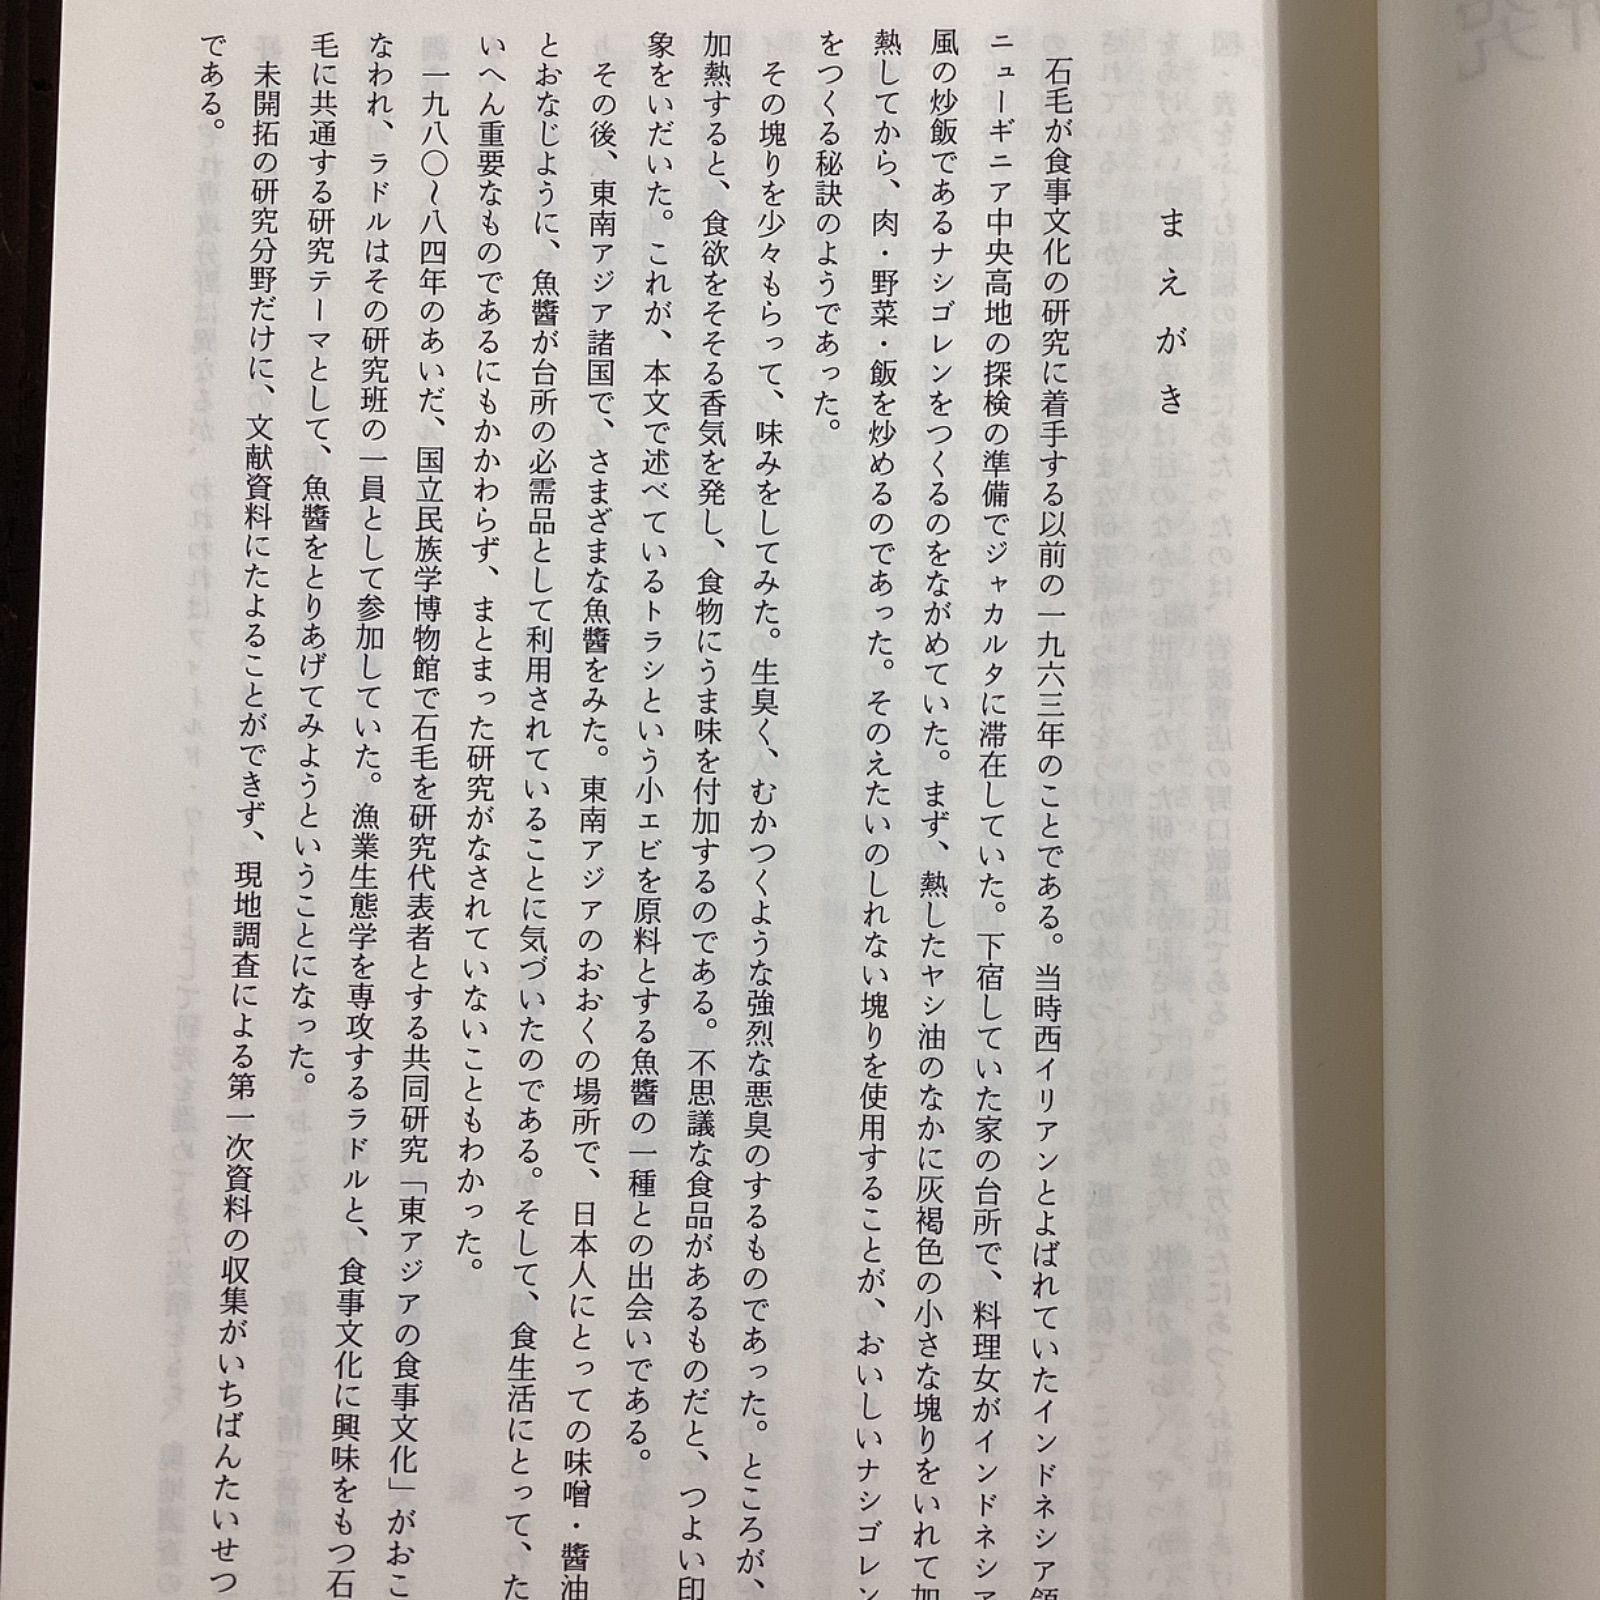 まえがき
石毛が食事文化の研究に着手する以前の一九六三年のことである。当時西イリアンとよばれていたインドネシア領
ニューギニア中央高地の探検の準備でジャカルタに滞在していた。下宿していた家の台所で、料理女がインドネシア
風の炒飯であるナシゴレンをつくるのをながめていた。まず、熱したヤシ油のなかに灰褐色の小さな塊りをいれて加
熱してから、肉・野菜・飯を炒めるのであった。そのえたいのしれない塊りを使用することが、おいしいナシゴレン
をつくる秘訣のようであった。
その塊りを少々もらって、味みをしてみた。生臭く、むかつくような強烈な悪臭のするものであった。ところが、
加熱すると、食欲をそそる香気を発し、食物にうま味を付加するのである。不思議な食品があるものだと、つよい印
象をいだいた。これが、本文で述べているトラシという小エビを原料とする魚醬の一種との出会いである。
その後、東南アジア諸国で、さまざまな魚醬をみた。東南アジアのおおくの場所で、日本人にとっての味噌・醬油
とおなじように、魚醬が台所の必需品として利用されていることに気づいたのである。そして、食生活にとって、た
いへん重要なものであるにもかかわらず、まとまった研究がなされていないこともわかった。
一九八〇〜八四年のあいだ、国立民族学博物館で石毛を研究代表者とする共同研究「東アジアの食事文化」がおこ
なわれ、ラドルはその研究班の一員として参加していた。漁業生態学を専攻するラドルと、食事文化に興味をもつ石
毛に共通する研究テーマとして、魚醬をとりあげてみようということになった。
未開拓の研究分野だけに、文献資料にたよることができず、現地調査による第一次資料の収集がいちばんたいせつ
である。